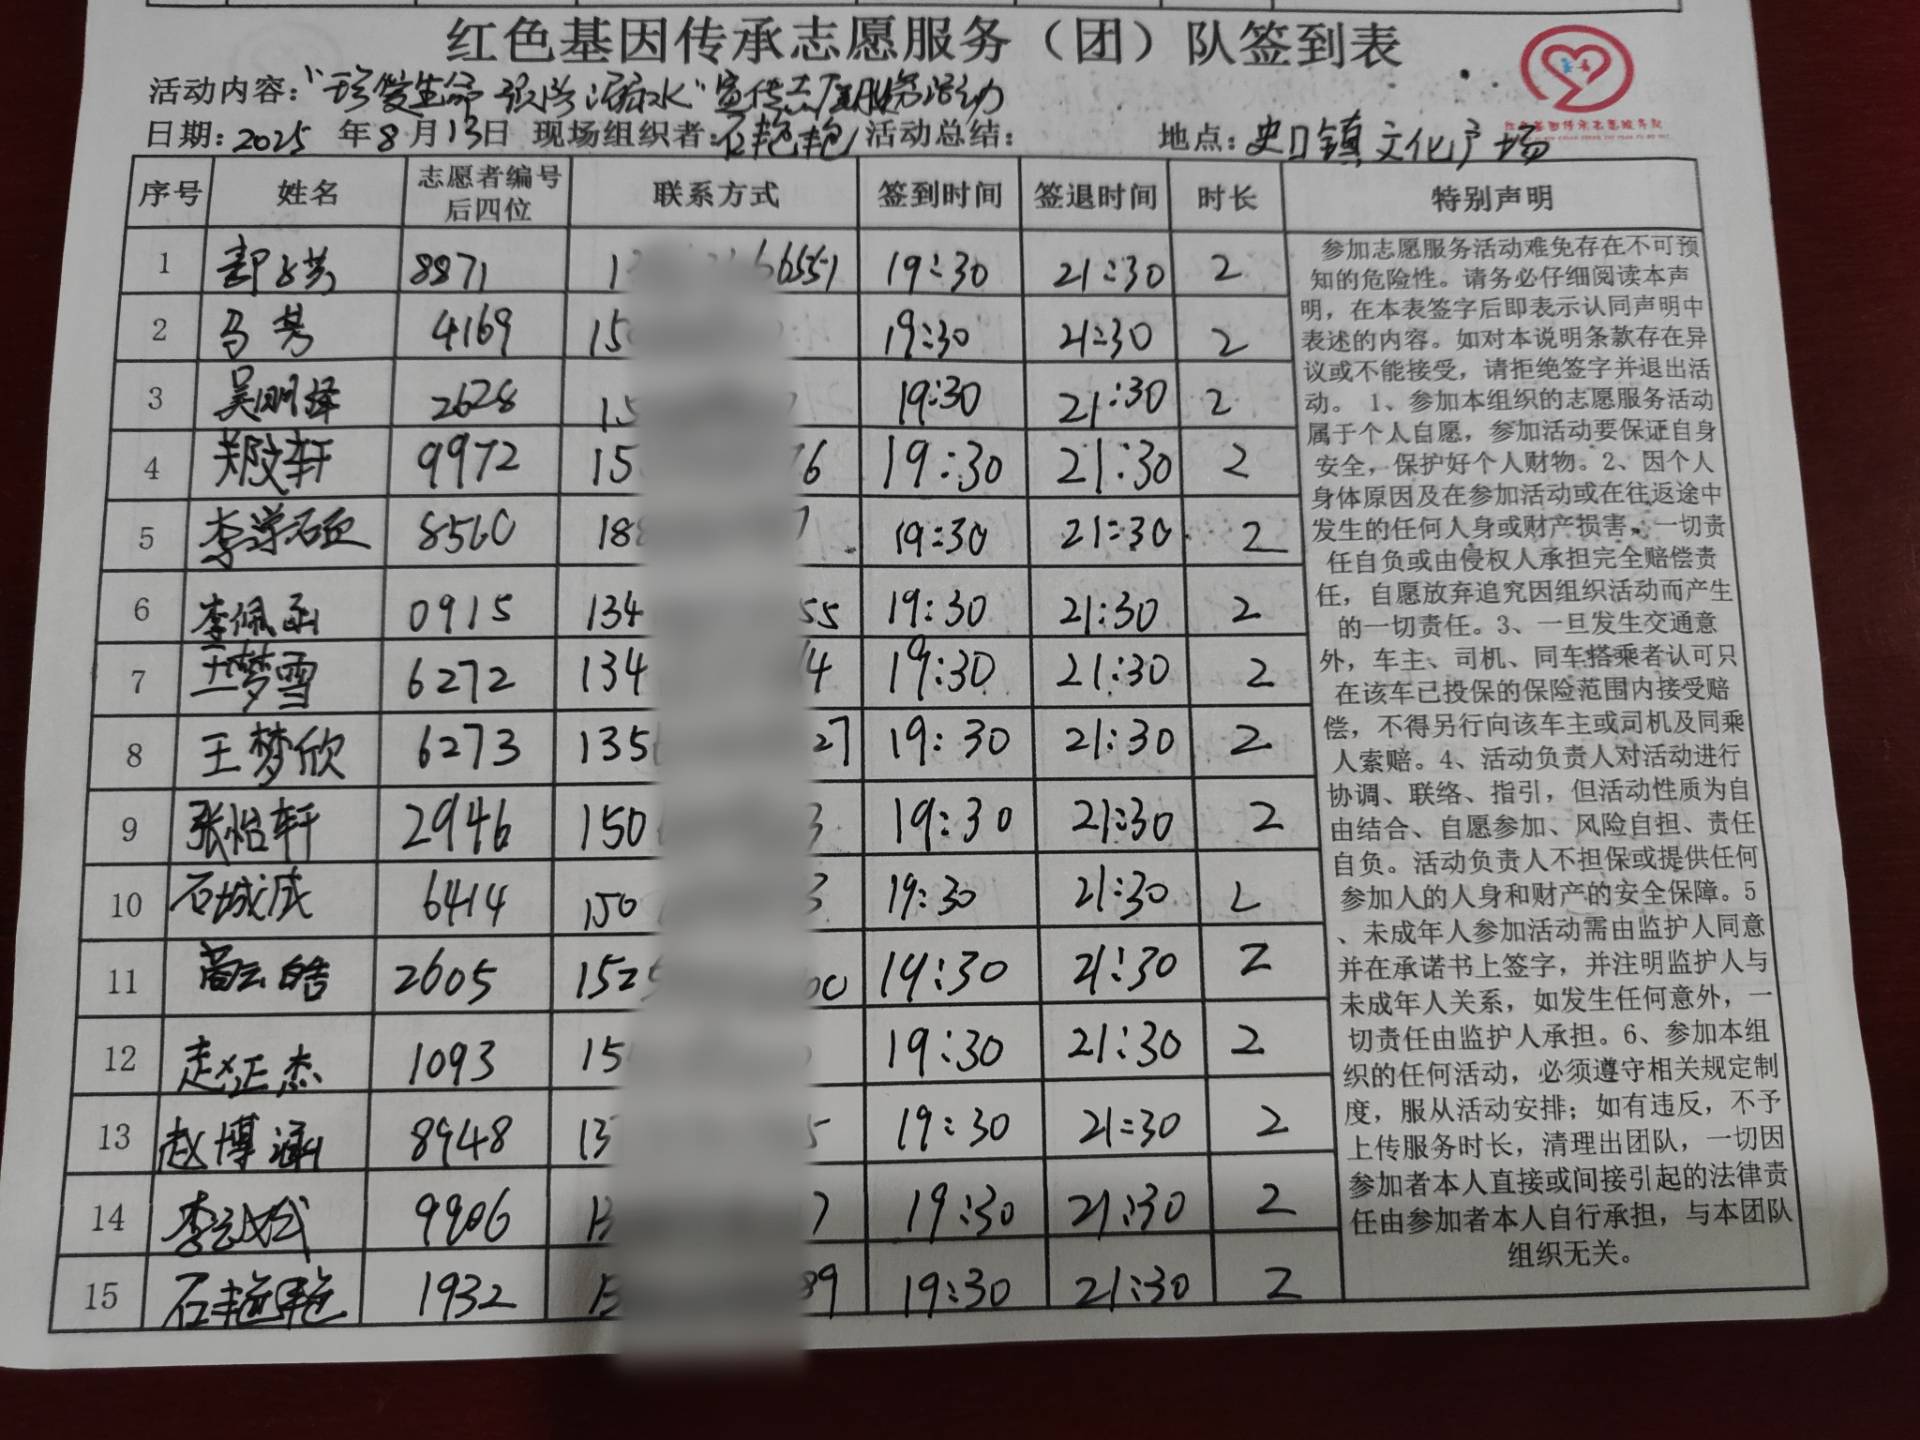 红色基因传承志愿服务（团）队签到表
活动内容：“珍爱生命 预防溺水”宣传志愿服务活动
日期：2025 年 8 月 13 日 现场组织者：石艳艳 活动总结： 地点：史口镇文化广场
序号 姓名 志愿者编号后四位 联系方式 签到时间 签退时间 时长 特别声明
1 8871 19:30 21:30 2
2 马芳 4169 15 19:30 21:30 2
3 吴明泽 2628 15 19:30 21:30 2
4 郑文轩 9972 15 76 19:30 21:30 2
5 李学硕 8560 188 19:30 21:30 2
6 李佩函 0915 134 55 19:30 21:30 2
7 王梦雪 6272 134 4 19:30 21:30 2
8 王梦欣 6273 135 27 19:30 21:30 2
9 张怡轩 2946 150 3 19:30 21:30 2
10 石城成 6414 150 3 19:30 21:30 2
11 云皓 2605 152 00 19:30 21:30 2
12 赵正杰 1093 15 19:30 21:30 2
13 赵博涵 8948 13 5 19:30 21:30 2
14 李 9906 13 7 19:30 21:30 2
15 石艳艳 1932 13 89 19:30 21:30 2
参加志愿服务活动难免存在不可预
知的危险性。请务必仔细阅读本声
明，在本表签字后即表示认同声明中
表述的内容。如对本说明条款存在异
议或不能接受，请拒绝签字并退出活
动。 1、参加本组织的志愿服务活动
属于个人自愿，参加活动要保证自身
安全，保护好个人财物。2、因个人
身体原因及在参加活动或在往返途中
发生的任何人身或财产损害，一切责
任自负或由侵权人承担完全赔偿责
任，自愿放弃追究因组织活动而产生
的一切责任。3、一旦发生交通意
外，车主、司机、同车搭乘者认可只
在该车已投保的保险范围内接受赔
偿，不得另行向该车主或司机及同乘
人索赔。4、活动负责人对活动进行
协调、联络、指引，但活动性质为自
由结合、自愿参加、风险自担、责任
自负。活动负责人不担保或提供任何
参加人的人身和财产的安全保障。5
、未成年人参加活动需由监护人同意
并在承诺书上签字，并注明监护人与
未成年人关系，如发生任何意外，一
切责任由监护人承担。6、参加本组
织的任何活动，必须遵守相关规定制
度，服从活动安排；如有违反，不予
上传服务时长，清理出团队，一切因
参加者本人直接或间接引起的法律责
任由参加者本人自行承担，与本团队
组织无关。